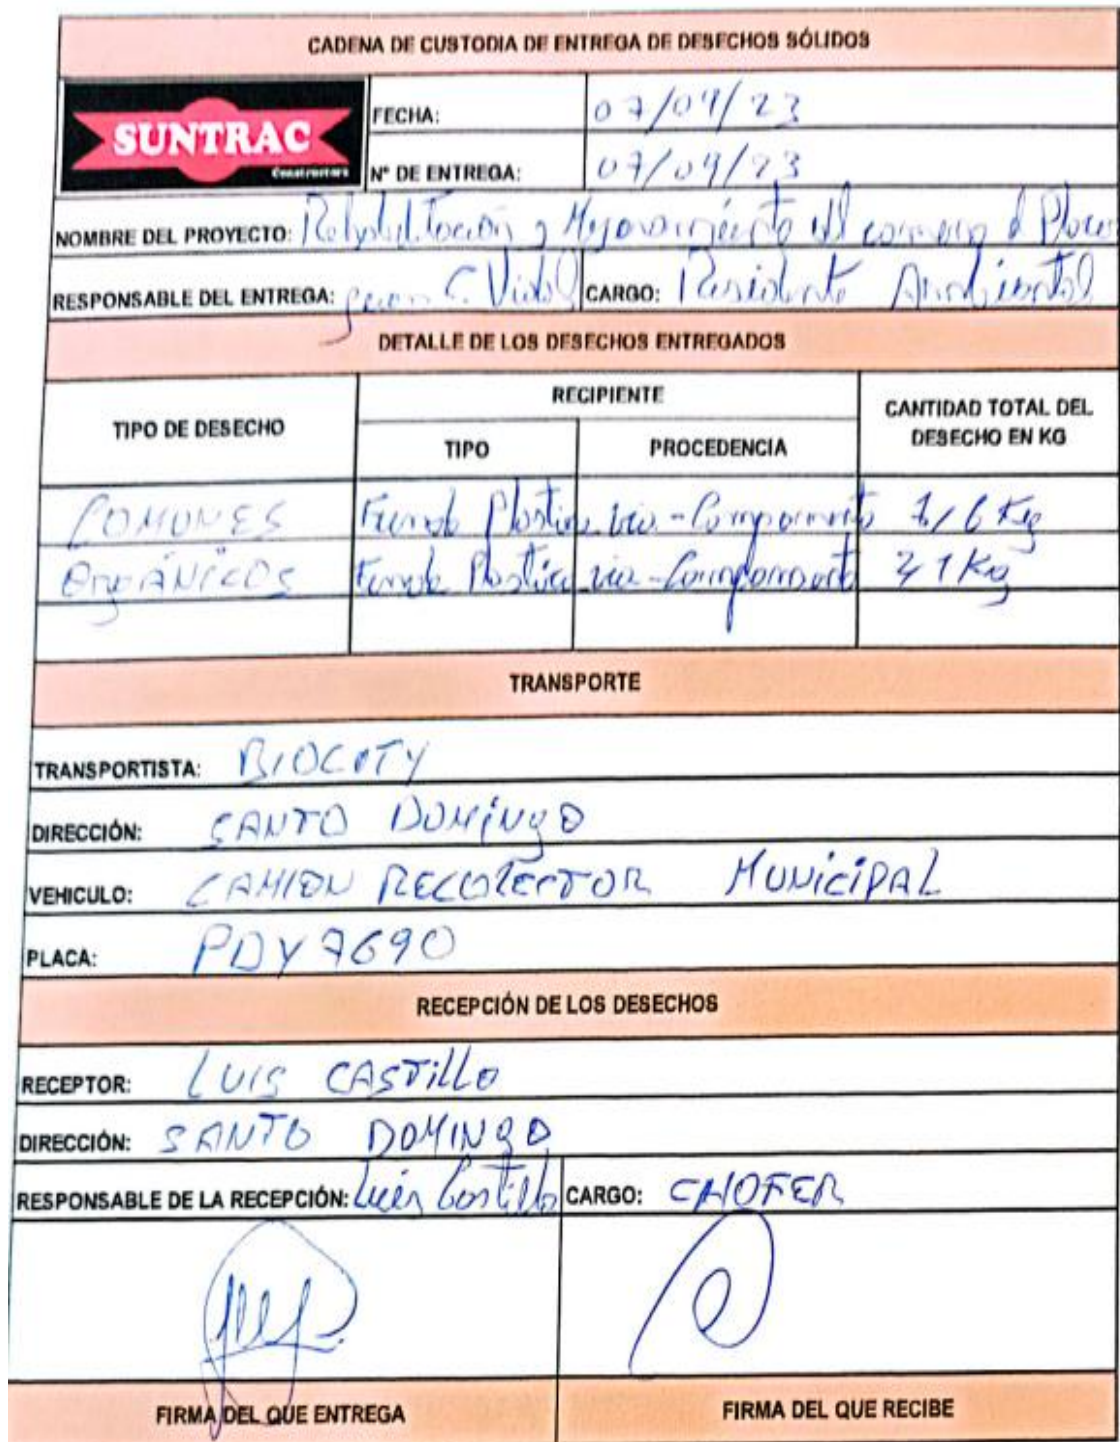 CADENA DE CUSTODIA DE ENTREGA DE DESECHOS SÓLIDOS
SUNTRAC
Constructora
FECHA: 07/09/23
N° DE ENTREGA: 07/09/23
NOMBRE DEL PROYECTO: Rehabilitación y Mejoramiento del camino d
RESPONSABLE DEL ENTREGA: C. Vidal CARGO: Residente Ambiental
DETALLE DE LOS DESECHOS ENTREGADOS
TIPO DE DESECHO RECIPIENTE CANTIDAD TOTAL DEL DESECHO EN KG
TIPO PROCEDENCIA
COMUNES Funda Plastica via-Campamento Kg
ORGÁNICOS Funda Plastica via-Campamento Kg
TRANSPORTE
TRANSPORTISTA: BIOCITY
DIRECCIÓN: SANTO DOMINGO
VEHICULO: CAMION RECOLECTOR MUNICIPAL
PLACA: PDY7690
RECEPCIÓN DE LOS DESECHOS
RECEPTOR: LUIS CASTILLO
DIRECCIÓN: SANTO DOMINGO
RESPONSABLE DE LA RECEPCIÓN: Luis Castillo CARGO: CHOFER
FIRMA DEL QUE ENTREGA FIRMA DEL QUE RECIBE